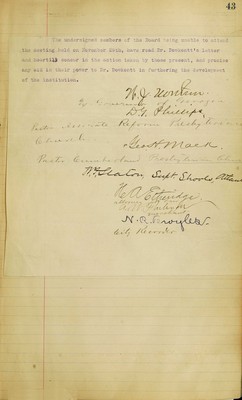 43
The undersigned members of the Board being unable to attend
the meeting held on November 24th, have read Dr. Bedwell's letter
and heartily concur in the action taken by those present, and promise
any aid in their power to Dr. in furthering the development
of the institution.
W. J. Northen
Ex Governor of Georgia
D. G. Phillips,
Pastor Associate Reform Presbyterian
Church
Geo. H. Mack.
Pastor Cumberland Presbyterian Church
Wm. Slaton, Supt Schools, Atlanta
H. A. Etheridge
N. A.
City Recorder